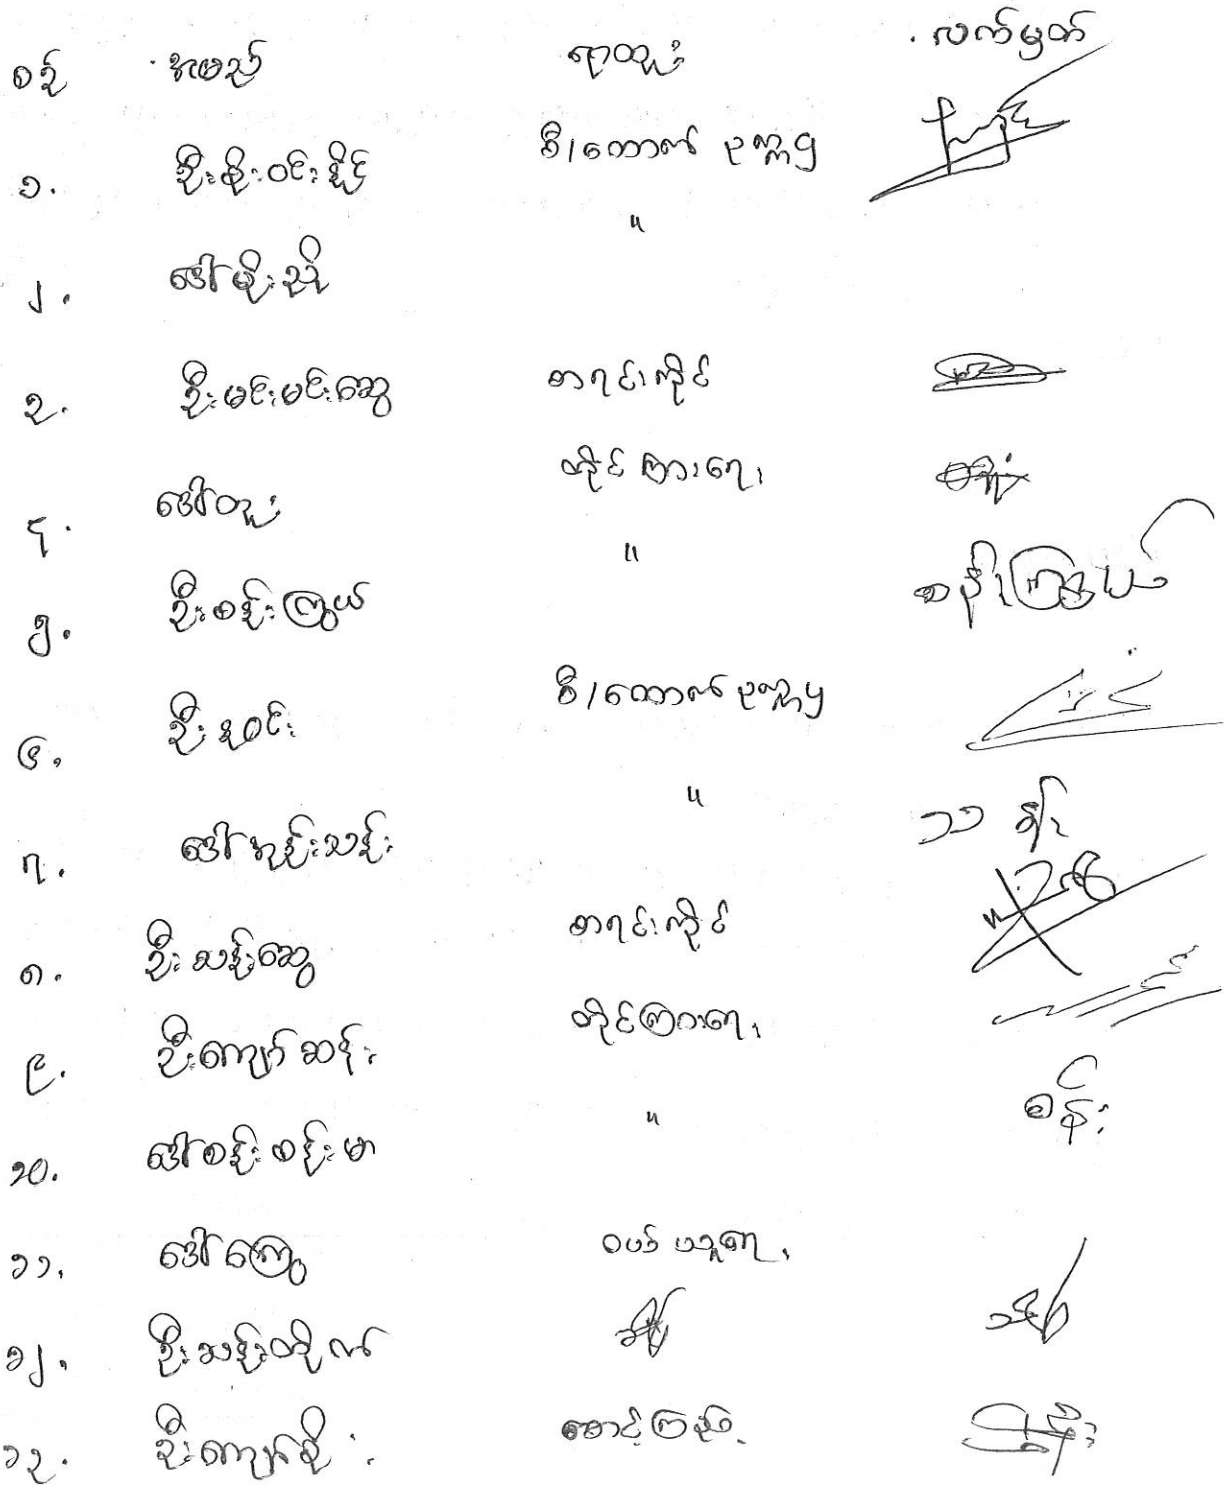 စဉ် အမည် ရာထူး လက်မှတ်
၁. ဦးစိုးဝင်းနိုင် စီ/ထောက် ဥက္ကဋ္ဌ
၂. ဒေါ်မိုးညို "
၃. ဦးမင်းမင်းဆွေ စာရင်းကိုင်
၄. ဒေါ်တူး တိုင်ကြားရေး
၅. ဦးစန်းကြွယ် " စန်းကြွယ်
၆. ဦး ဝင်း စီ/ထောက် ဥက္ကဋ္ဌ
၇. ဒေါ်အုန်းသန်း "
၈. ဦးသန်းဆွေ စာရင်းကိုင်
၉. ဦးကျော်ဆန်း တိုင်ကြားရေး
၁၀. ဒေါ်စန်းစန်းမာ " စန်း
၁၁. ဒေါ်ကြွေ ဝယ်ယူရေး
၁၂. ဦးသန်းတိုက်
၁၃. ဦးကျော်စိုး စောင့်ကြည့်